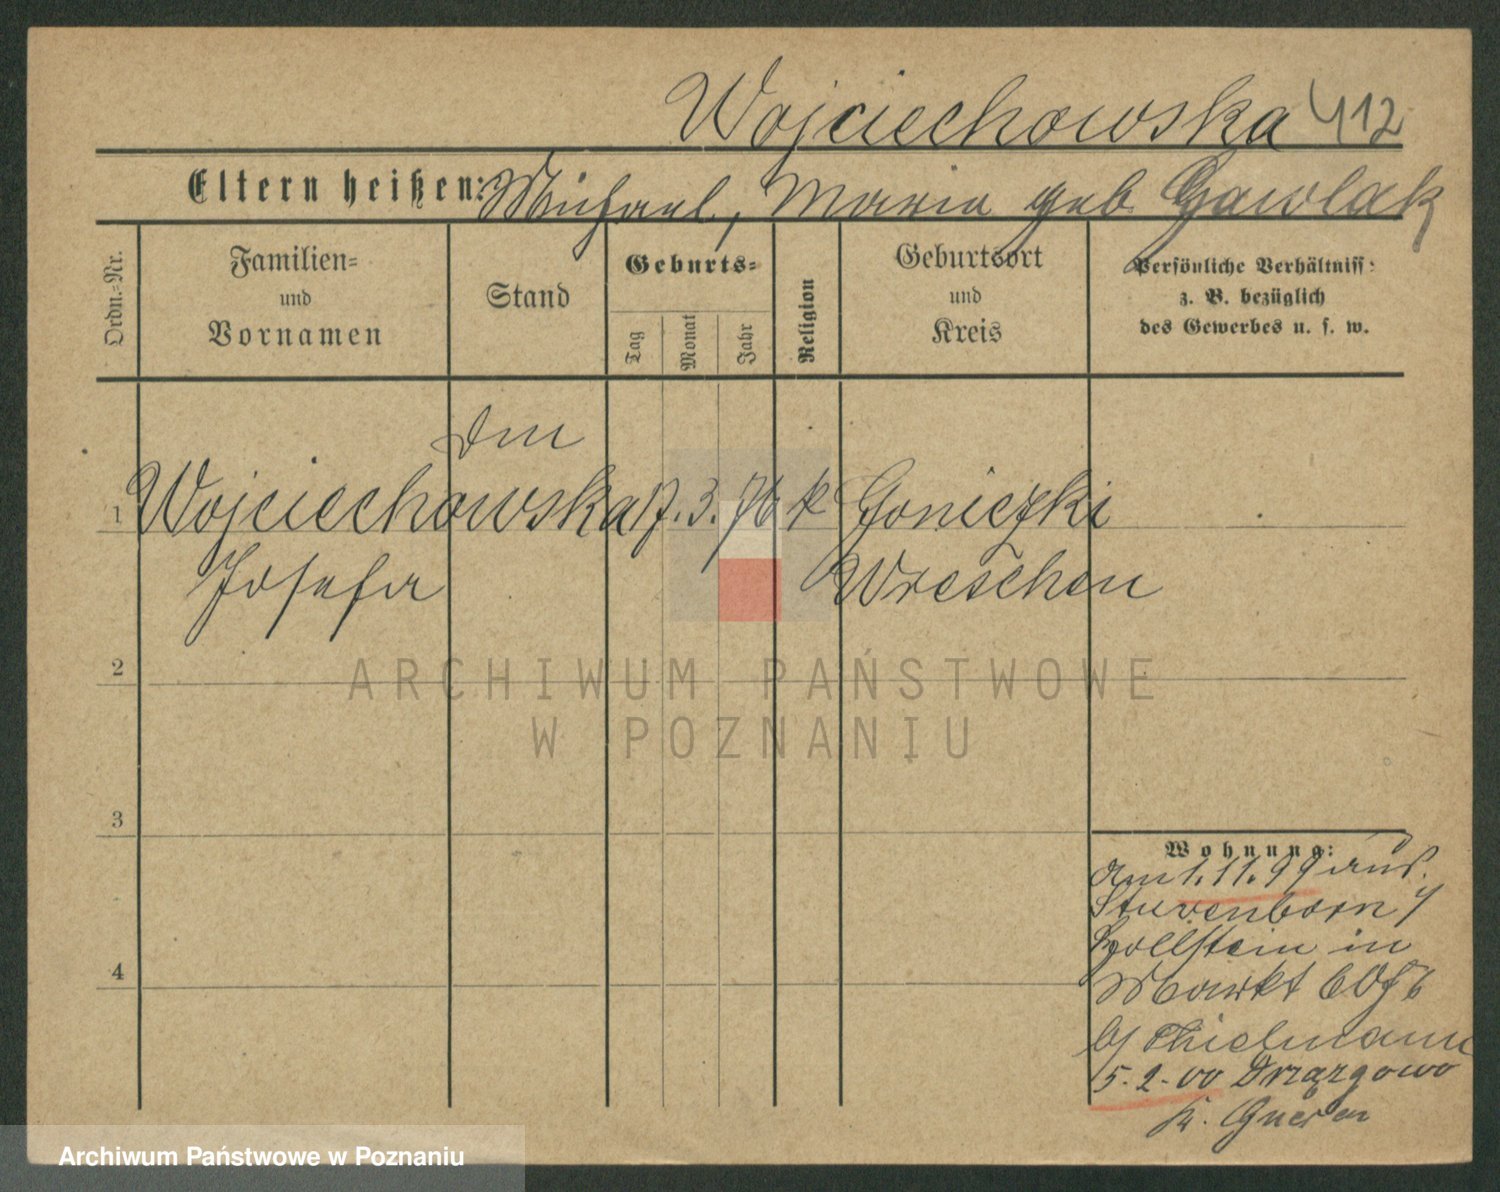 Wojciechowska 412
Eltern heißen: Michael, Maria geb Gawlak
Ordn.-Nr.
Familien-
und
Vornamen
Stand
Geburts-
Tag
Monat
Jahr
Religion
Geburtsort
und
Kreis
Persönliche Verhältniss:
z. B. bezüglich
des Gewerbes u. s. w.
1 Wojciechowska 17. 3. 76 k Goniczki
Josefa Wreschen
2
3
4
Wohnung:
am 1.11.99 aus.
Stuvenborn
Hollstein in
Markt 60
b/ Thielmann
5.2.00 Drzązgowo
K. Gnesen
ARCHIWUM PAŃSTWOWE
W POZNANIU
Archiwum Państwowe w Poznaniu